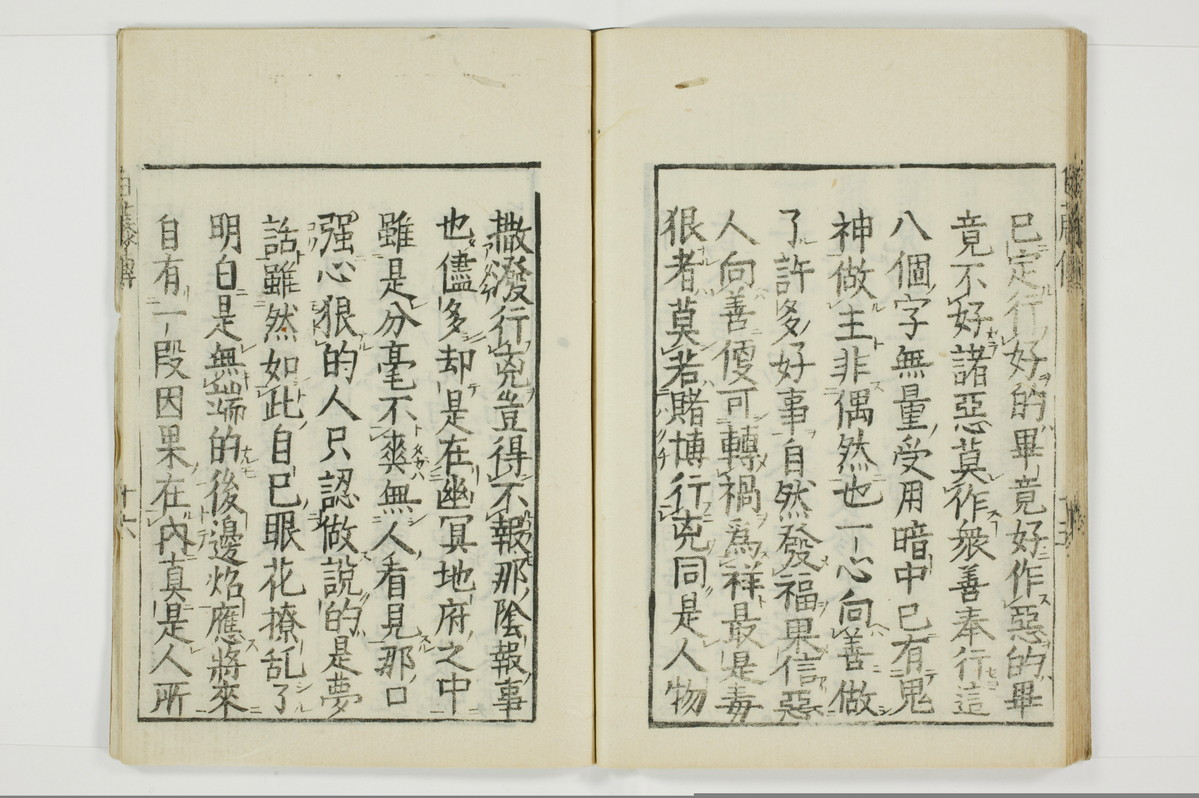 已定行好的畢竟好作惡的畢
竟不好諸惡莫作衆善奉行這
八個字無量受用暗中已有鬼
神做主非偶然也一心向善做
了許多好事自然發福果信惡
人向善便可轉禍爲祥最是毒
狠者莫若賭博行兇同是人物
撒潑行兇豈得不報那陰報事
也儘多却是在幽冥地府之中
雖是分毫不爽無人看見那口
强心狠的人只認做說的是夢
話雖然如此自已眼花撩乱了
明白是無端的後邊焰應將來
自有一段因果在內真是人所
十六